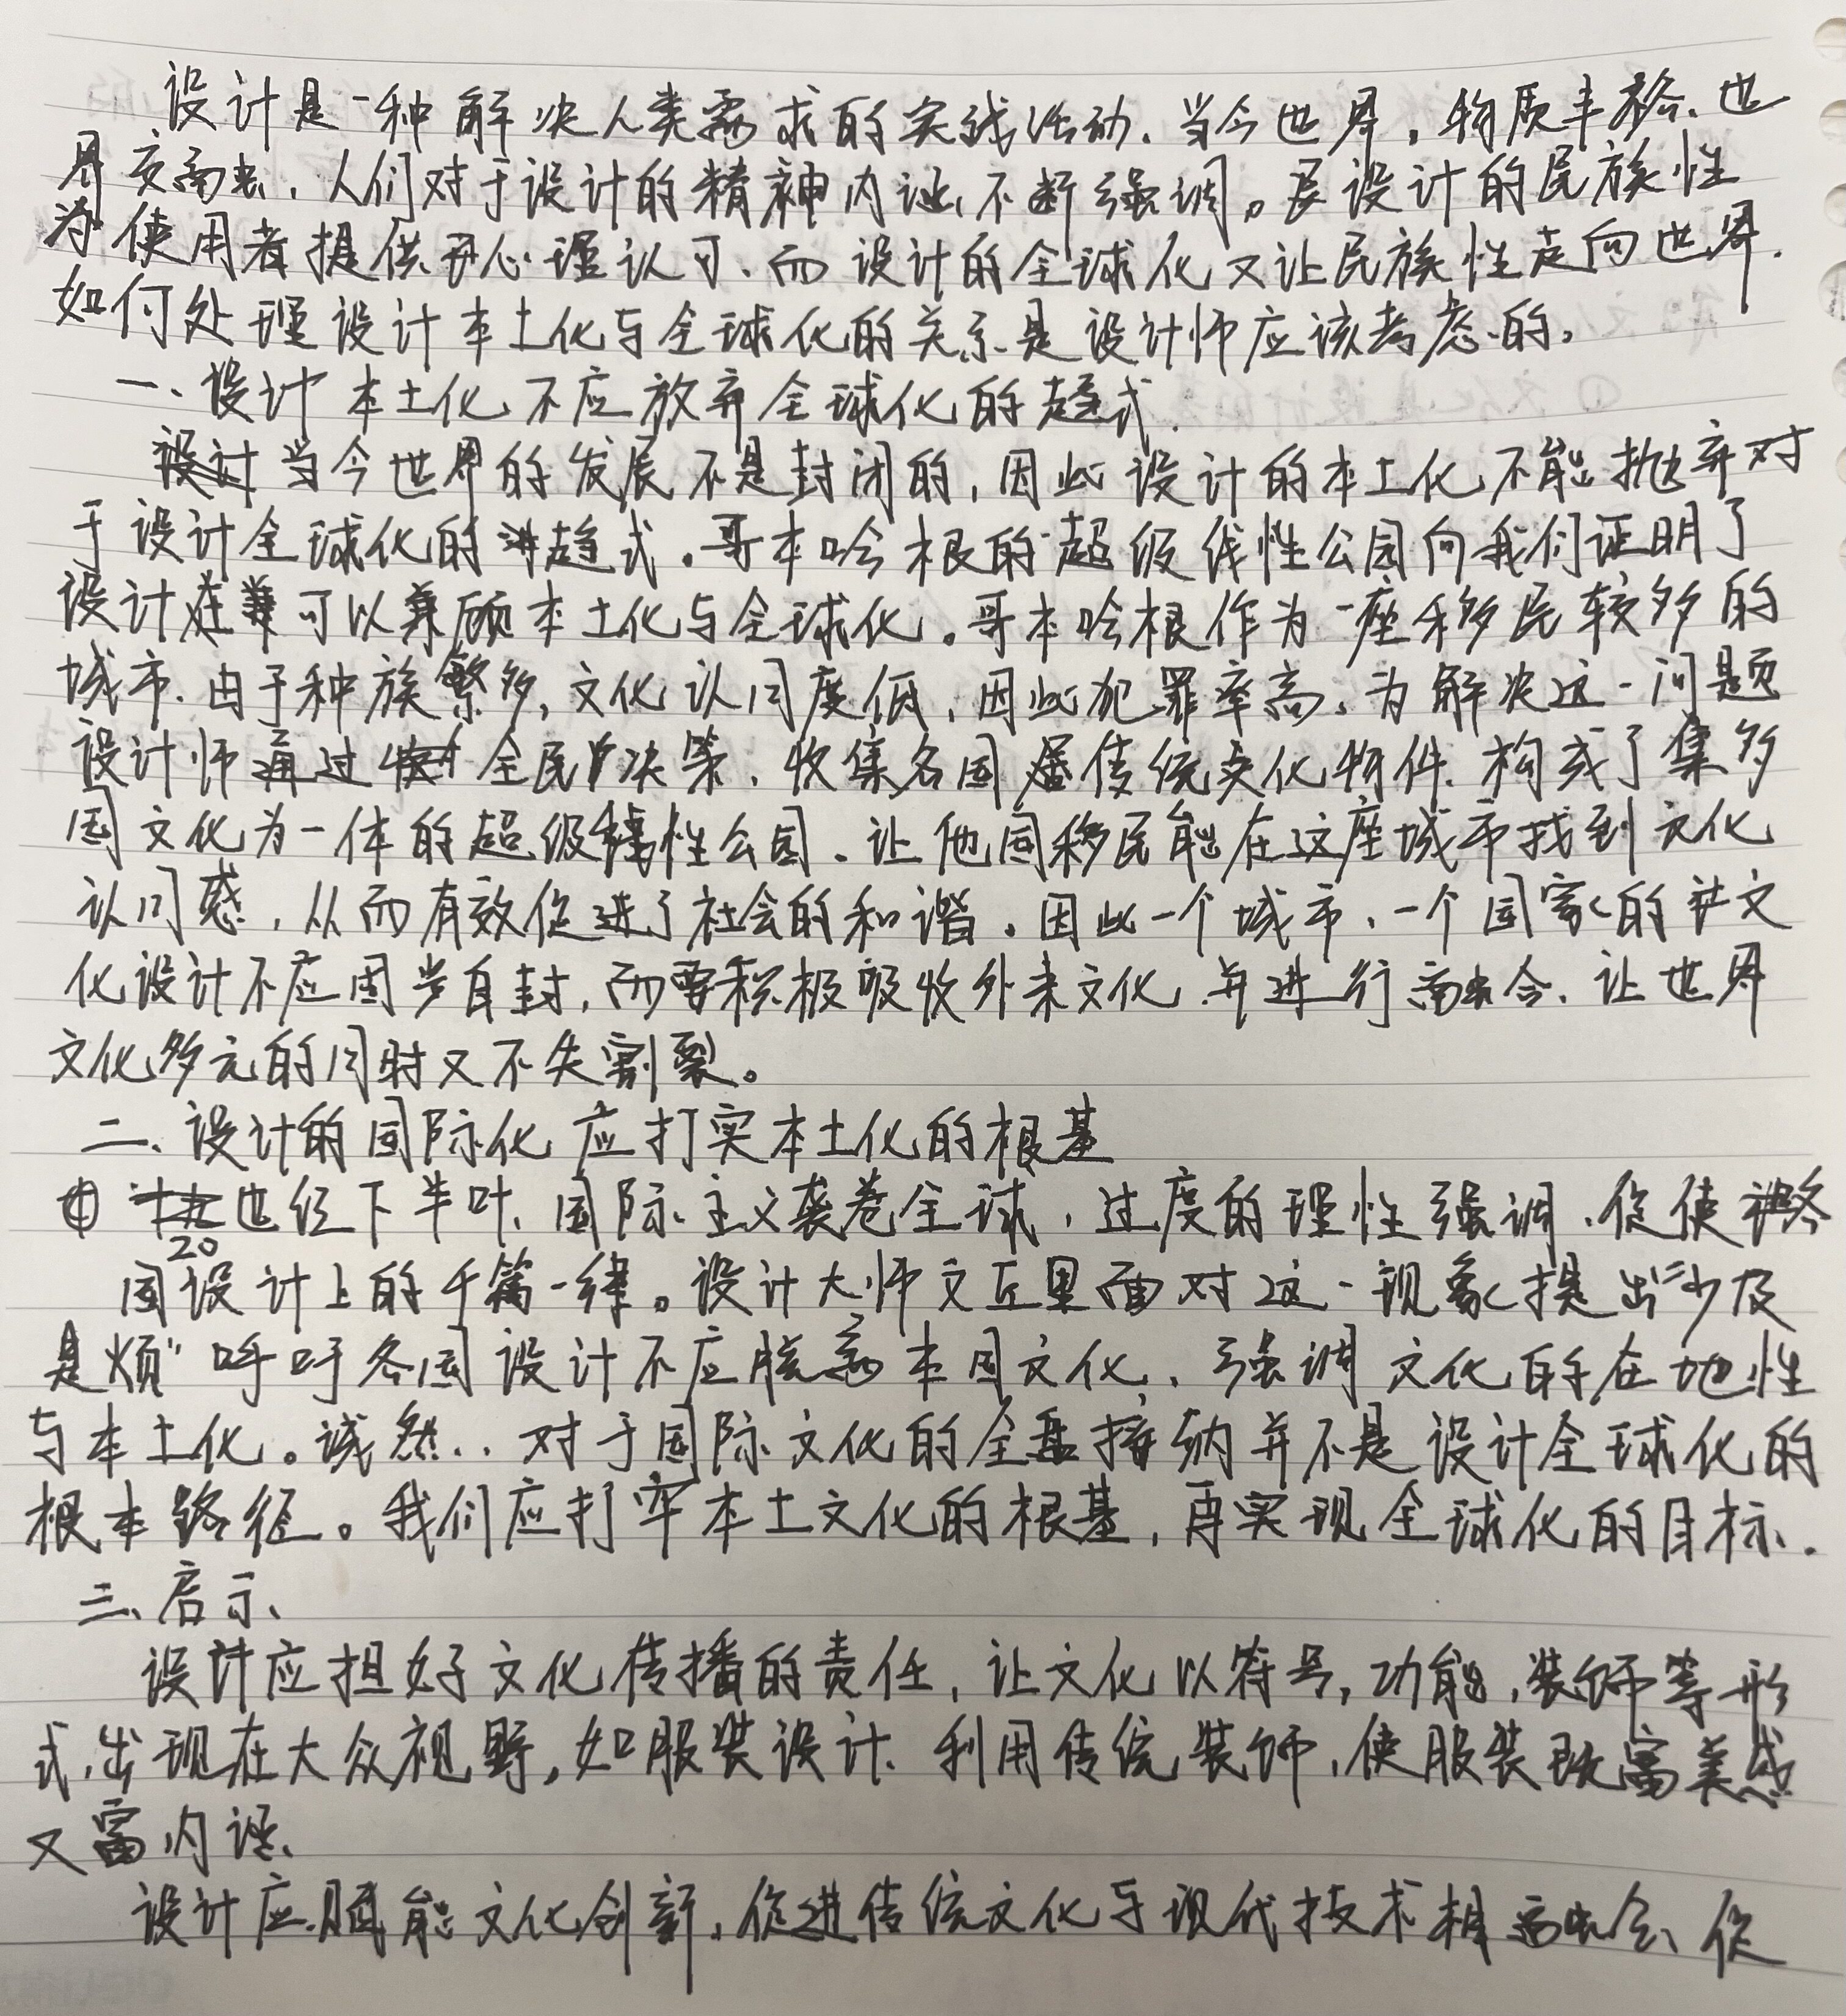 设计是一种解决人类需求的实践活动.当今世界,物质丰裕.世
界交融,人们对于设计的精神内涵不断强调。设计的民族性
为使用者提供心理认可、而设计的全球化又让民族性走向世界.
如何处理设计本土化与全球化的关系是设计师应该考虑的。
一、设计本土化不应放弃全球化的趋式.
当今世界的发展不是封闭的,因此设计的本土化不能抛弃对
于设计全球化的趋式。哥本哈根的超级线性公园向我们证明了
设计可以兼顾本土化与全球化。哥本哈根作为一座移民较多的
城市.由于种族繁多,文化认同度低,因此犯罪率高。为解决这一问题
设计师通过全民决策,收集各国传统文化物件.构成了集多
国文化为一体的超级线性公园。让他国移民能在这座城市找到文化
认同感,从而有效促进了社会的和谐。因此一个城市、一个国家的文
化设计不应固步自封,而要积极吸收外来文化并进行融合.让世界
文化多元的同时又不失割裂。
二、设计的国际化应打实本土化的根基
20世纪下半叶、国际主义袭卷全球,过度的理性强调、促使各
国设计上的千篇一律。设计大师文丘里面对这一现象提出"少及
是烦"呼吁各国设计不应脱离本国文化、强调文化的在地性
与本土化。诚然..对于国际文化的全盘接纳并不是设计全球化的
根本路径。我们应打牢本土文化的根基,再实现全球化的目标.
三、启示、
设计应担好文化传播的责任,让文化以符号,功能,装饰等形
式出现在大众视野,如服装设计.利用传统装饰,使服装既富美感
又富内涵.
设计应赋能文化创新,促进传统文化与现代技术相融合、促